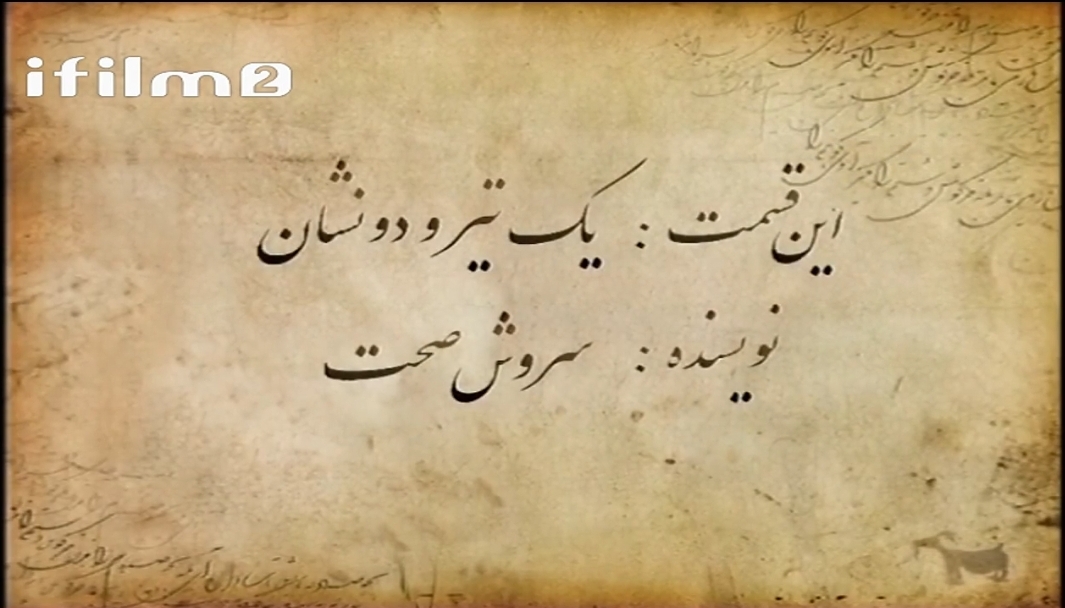 ifilm2
این قسمت : یک تیر و دو نشان
نویسنده : سروش صحت